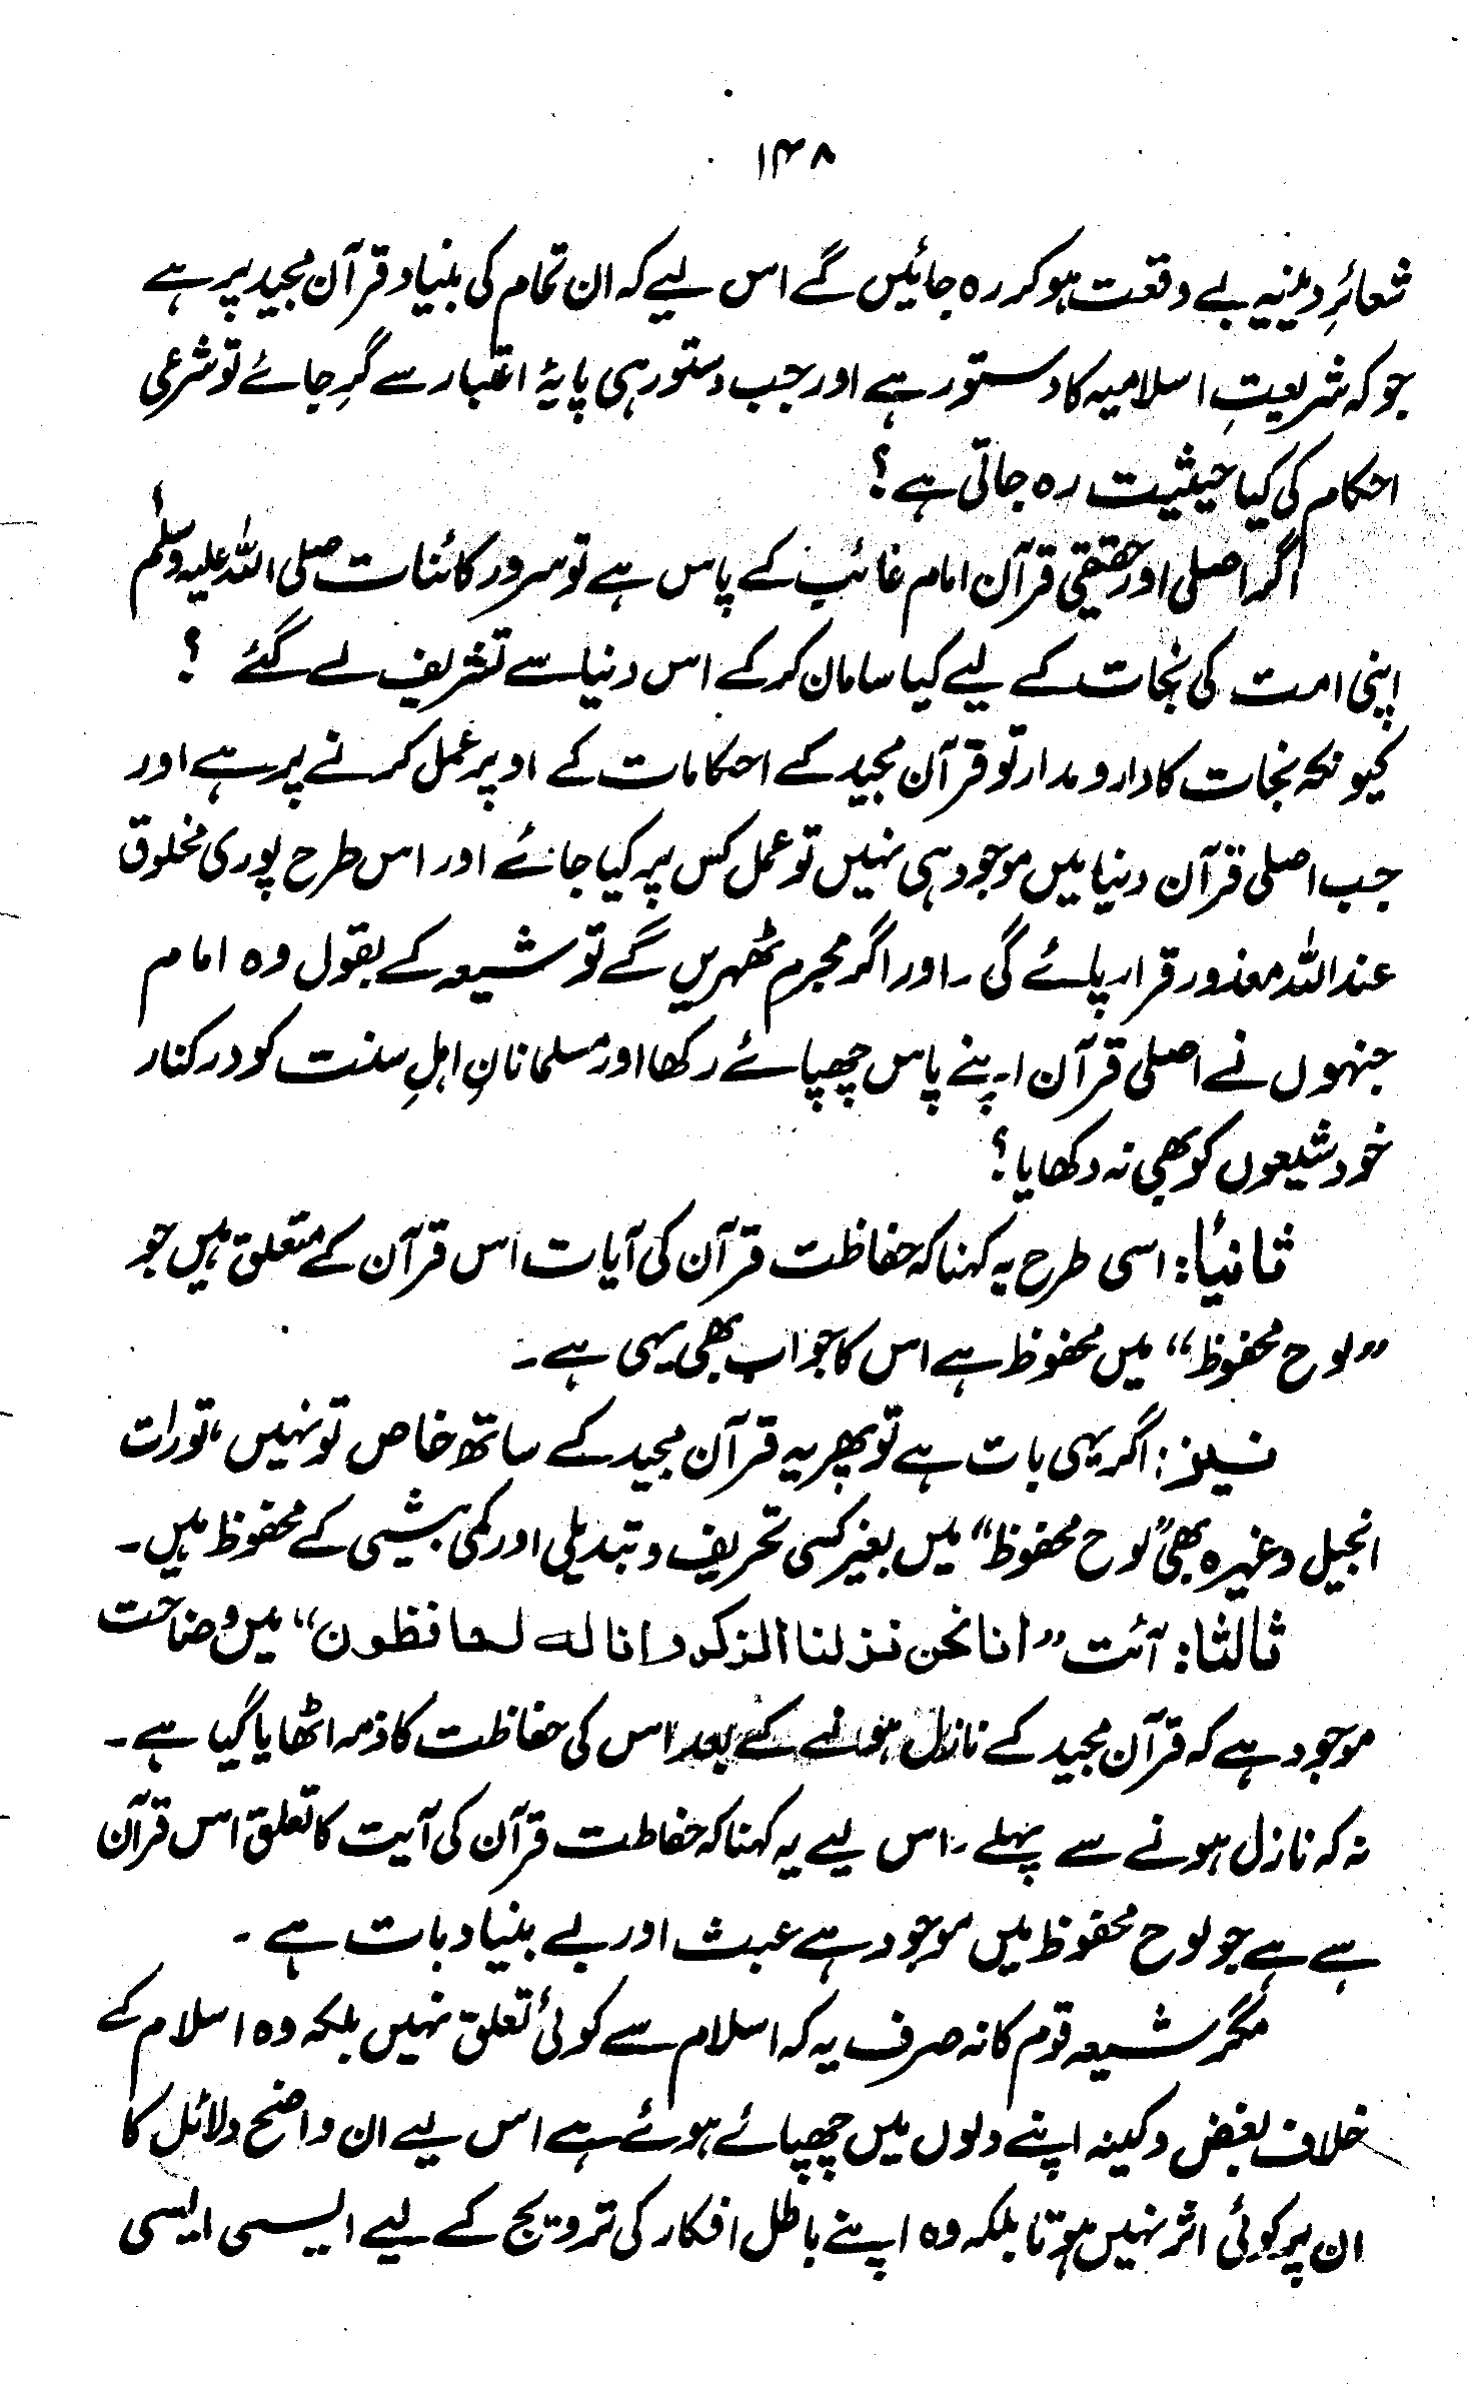 ۱۴۸
شعائرِ دینیہ بے وقعت ہو کر رہ جائیں گے اس لیے کہ ان تمام کی بنیاد قرآن مجید پر ہے
جو کہ شریعتِ اسلامیہ کا دستور ہے اور جب دستور ہی پایۂ اعتبار سے گرِ جائے تو شرعی
احکام کی کیا حیثیت رہ جاتی ہے؟
اگر اصلی اور حقیقی قرآن امام غائب کے پاس ہے تو سرور کائنات صلی اللہ علیہ وسلم
اپنی امت کی نجات کے لیے کیا سامان کر کے اس دنیا سے تشریف لے گئے ؟
کیونکہ نجات کا دارومدار تو قرآن مجید کے احکامات کے اوپر عمل کرنے پر ہے اور
جب اصلی قرآن دنیا میں موجود ہی نہیں تو عمل کس پر کیا جائے اور اس طرح پوری مخلوق
عنداللہ معذور قرار پائے گی ۔ اور اگر مجرم ٹھہریں گے تو شیعہ کے بقول وہ امام
جنہوں نے اصلی قرآن اپنے پاس چھپائے رکھا اور مسلمانانِ اہلِ سنت کو درکنار
خود شیعوں کو بھی نہ دکھایا؟
ثانیًا: اسی طرح یہ کہنا کہ حفاظت قرآن کی آیات اس قرآن کے متعلق ہیں جو
”لوح محفوظ“ میں محفوظ ہے اس کا جواب بھی یہی ہے۔
نیز: اگر یہی بات ہے تو پھر یہ قرآن مجید کے ساتھ خاص تو نہیں، تورات
انجیل وغیرہ بھی ”لوح محفوظ“ میں بغیر کسی تحریف و تبدیلی اور کمی بیشی کے محفوظ ہیں۔
ثالثا: آئت ”انا نحن نزلنا الذکر وانا له لحافظون“ میں وضاحت
موجود ہے کہ قرآن مجید کے نازل ہونے کے بعد اس کی حفاظت کا ذمہ اٹھایا گیا ہے۔
نہ کہ نازل ہونے سے پہلے ۔ اس لیے یہ کہنا کہ حفاطت قرآن کی آیت کا تعلق اس قرآن
سے ہے جو لوح محفوظ میں موجود ہے عبث اور بے بنیاد بات ہے ۔
مگر شیعہ قوم کا نہ صرف یہ کہ اسلام سے کوئی تعلق نہیں بلکہ وہ اسلام کے
خلاف بغض و کینہ اپنے دلوں میں چھپائے ہوئے ہے اس لیے ان واضح دلائل کا
ان پر کوئی اثر نہیں ہوتا بلکہ وہ اپنے باطل افکار کی ترویج کے لیے ایسی ایسی